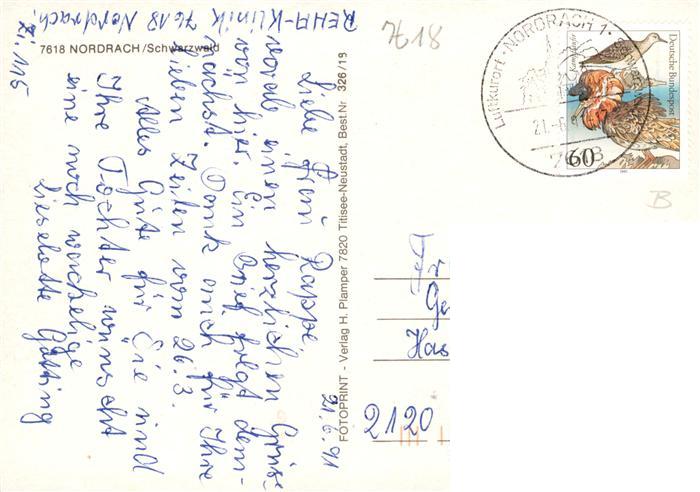 REHA-Klinik 7618 Nordrach,
Zi. 115
7618 NORDRACH/Schwarzwald
21.6.91
Liebe Frau Rappe,
vorab einen herzlichen Grüße
von hier. Ein Brief folgt dem-
nächst. Dank auch für Ihre
lieben Zeilen vom 26.3.
Alles Gute für Sie und
Ihre Tochter wünscht
eine noch wackelige
Lieselotte
FOTOPRINT - Verlag H. Plamper 7820 Titisee-Neustadt, Best.Nr 326/19
7618
Luftkurort · NORDRACH 1
21.-6.
Deutsche Bundespost
60
B
Fr
Ge
Has
2120